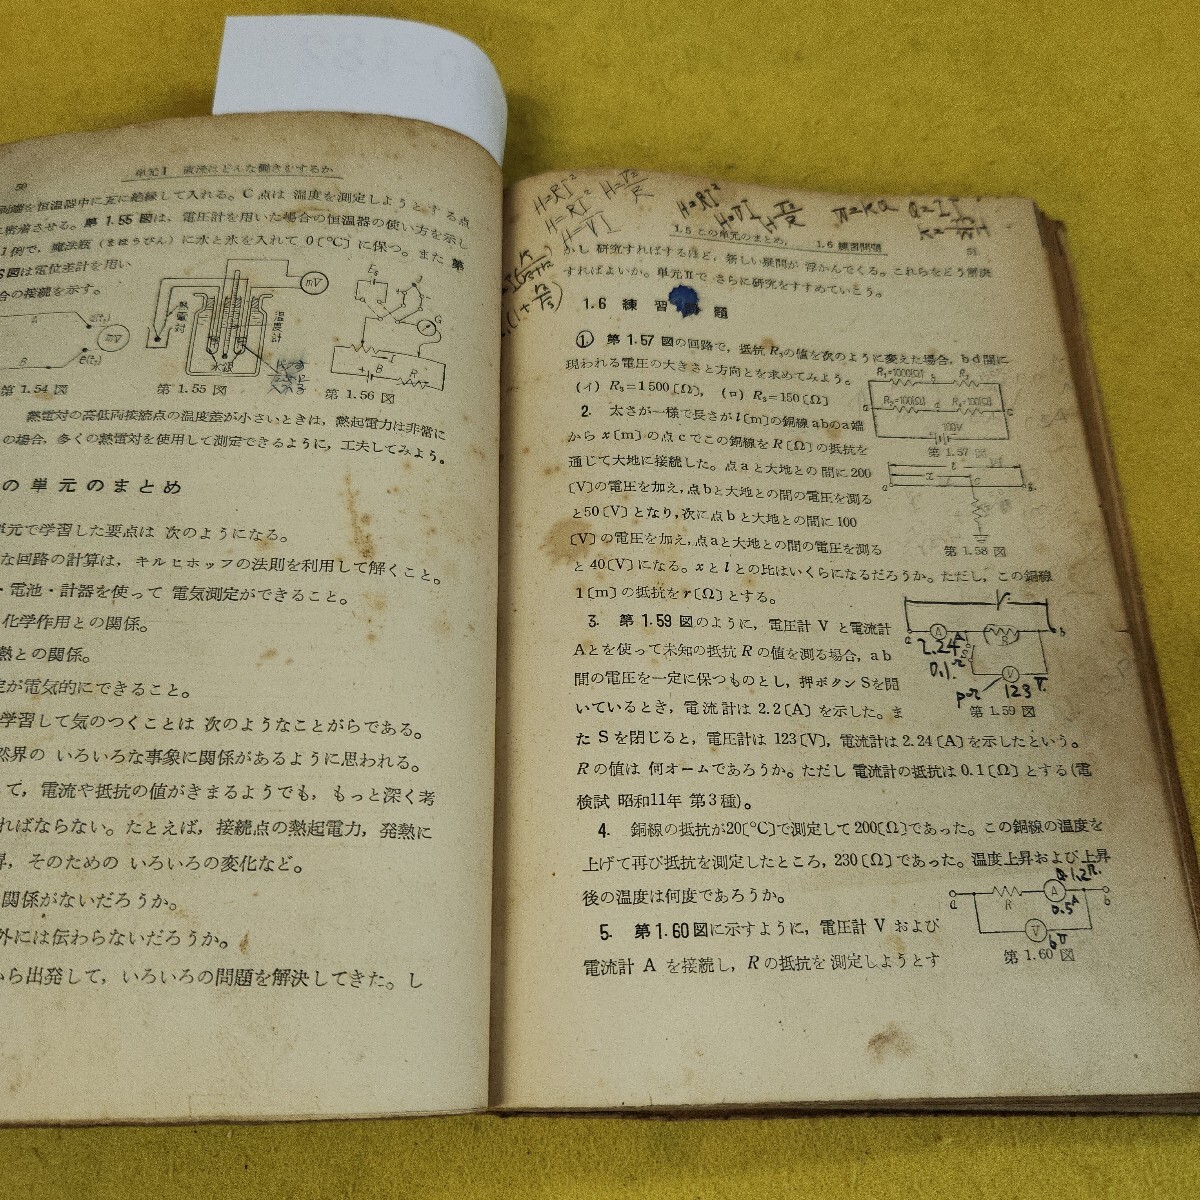 50
単元I 直流はどんな働きをするか
両端を恒温器中に互に絶縁して入れる。C点は 温度を測定しようとする点
に密着させる。第 1.55 図は，電圧計を用いた場合の恒温器の使い方を示し
魔法瓶 (まほうびん) に水と氷を入れて 0〔°C〕に保つ。また 第
図は電位差計を用い
合の接続を示す。
A
B
mV
第 1.54 図
熱電対
温度計
水銀
mV
第 1.55 図
G
I
B
R
第 1.56 図
熱電対の高低両接続点の温度差が小さいときは，熱起電力は非常に
の場合，多くの熱電対を使用して測定できるように，工夫してみよう。
の単元のまとめ
単元で学習した要点は 次のようになる。
な回路の計算は，キルヒホッフの法則を利用して解くこと。
・電池・計器を使って 電気測定ができること。
化学作用との関係。
熱との関係。
定が電気的にできること。
学習して気のつくことは 次のようなことがらである。
然界の いろいろな事象に関係があるように思われる。
て，電流や抵抗の値がきまるようでも，もっと深く考
ればならない。たとえば，接続点の熱起電力，発熱に
昇，そのための いろいろの変化など。
関係がないだろうか。
外には伝わらないだろうか。
から出発して，いろいろの問題を解決してきた。し
H=RI²
H=RI²
H=VI
H=V²/R
H=RI²
H=VI
1.5 この単元のまとめ， 1.6 練習問題
51
かし 研究すればするほど，新しい疑問が 浮かんでくる。これらをどう解決
すればよいか。単元IIで さらに研究をすすめていこう。
1.6 練習問題
1. 第 1.57 図の回路で，抵抗 R₃の値を次のように変えた場合，bd 間に
現われる電圧の大きさと方向とを求めてみよう。
(イ) R₃=1500〔Ω〕， (ロ) R₃=150〔Ω〕
R₁=1000〔Ω〕
R₃
R₂=100〔Ω〕
R₄=100〔Ω〕
100V
第 1.57 図
2. 太さが一様で長さが l〔m〕の銅線 ab のa端
から x〔m〕の点 c でこの銅線を R〔Ω〕の抵抗を
通じて大地に接続した。点 a と大地との 間に 200
〔V〕の電圧を加え，点 b と大地との間の電圧を測る
と50〔V〕となり，次に点 b と大地との間に 100
〔V〕の電圧を加え，点aと大地との間の電圧を測る
と 40〔V〕になる。x と l との比はいくらになるだろうか。ただし，この銅線
1〔m〕の抵抗を r〔Ω〕とする。
第 1.58 図
3. 第 1.59 図のように，電圧計 V と電流計
Aとを使って未知の抵抗 R の値を測る場合，a b
間の電圧を一定に保つものとし，押ボタン Sを開
いているとき，電流計は 2.2〔A〕を示した。ま
た S を閉じると，電圧計は 123〔V〕，電流計は 2.24〔A〕を示したという。
R の値は 何オームであろうか。ただし 電流計の抵抗は 0.1〔Ω〕とする (電
検試 昭和11年 第 3 種)。
a
A
R
b
2.24A
V
123V
第 1.59 図
4. 銅線の抵抗が20〔°C〕で測定して 200〔Ω〕であった。この銅線の温度を
上げて再び抵抗を測定したところ，230〔Ω〕であった。温度上昇および上昇
後の温度は何度であろうか。
5. 第 1.60 図に示すように，電圧計 V および
電流計 A を接続し，R の抵抗を 測定しようとす
a
R
A
0.5A
b
V
6V
第 1.60 図